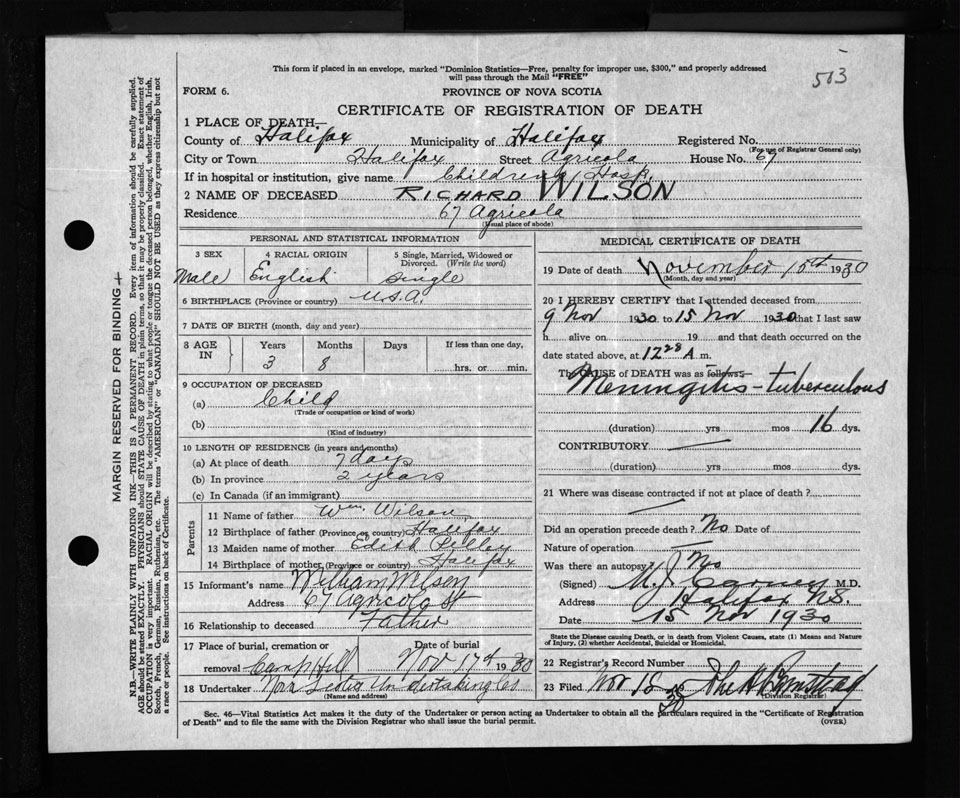 This form if placed in an envelope, marked "Dominion Statistics—Free, penalty for improper use, $300," and properly addressed
will pass through the Mail "FREE"
503
FORM 6.
PROVINCE OF NOVA SCOTIA
CERTIFICATE OF REGISTRATION OF DEATH
1 PLACE OF DEATH—
County of Halifax Municipality of Halifax Registered No.
(For use of Registrar General only)
City or Town Halifax Street Agricola House No. 67
If in hospital or institution, give name Children's Hosp.
2 NAME OF DECEASED RICHARD WILSON
Residence 67 Agricola
(Usual place of abode)
PERSONAL AND STATISTICAL INFORMATION
3 SEX 4 RACIAL ORIGIN 5 Single, Married, Widowed or
Divorced. (Write the word)
Male English single
6 BIRTHPLACE (Province or country) U.S.A.
7 DATE OF BIRTH (month, day and year)
8 AGE IN Years Months Days If less than one day,
3 8 hrs. or min.
9 OCCUPATION OF DECEASED
(a) Child
(Trade or occupation or kind of work)
(b)
(Kind of industry)
10 LENGTH OF RESIDENCE (in years and months)
(a) At place of death 7 days
(b) In province 2 years
(c) In Canada (if an immigrant)
Parents
11 Name of father Wm. Wilson
12 Birthplace of father (Province or country) Halifax
13 Maiden name of mother Edith
14 Birthplace of mother (Province or country) Halifax
15 Informant's name William Wilson
Address 67 Agricola St
16 Relationship to deceased Father
17 Place of burial, cremation or Date of burial
removal Camp Hill Nov 17th 1930
18 Undertaker Nova Scotia Undertaking Co
(Name and address)
MEDICAL CERTIFICATE OF DEATH
19 Date of death November 15th 1930
(Month, day and year)
20 I HEREBY CERTIFY that I attended deceased from
9 Nov 1930 to 15 Nov 1930 that I last saw
h alive on 19 and that death occurred on the
date stated above, at 12 28 A m.
The CAUSE of DEATH was as follows:—
Meningitis - tuberculous
(duration) yrs mos 16 dys.
CONTRIBUTORY
(duration) yrs mos dys.
21 Where was disease contracted if not at place of death?
Did an operation precede death? No Date of
Nature of operation
Was there an autopsy? No
(Signed) M.J. Carney M.D.
Address Halifax N.S.
Date 15 Nov 1930
State the Disease causing Death, or in death from Violent Causes, state (1) Means and Nature
of Injury, (2) whether Accidental, Suicidal or Homicidal.
22 Registrar's Record Number
23 Filed Nov 18 30
(Division Registrar)
Sec. 46—Vital Statistics Act makes it the duty of the Undertaker or person acting as Undertaker to obtain all the particulars required in the "Certificate of Registration
of Death" and to file the same with the Division Registrar who shall issue the burial permit.
(OVER)
MARGIN RESERVED FOR BINDING
N.B.—WRITE PLAINLY WITH UNFADING INK—THIS IS A PERMANENT RECORD. Every item of information should be carefully supplied.
AGE should be stated EXACTLY. PHYSICIANS should STATE CAUSE OF DEATH in plain terms, so that it may be properly classified. Exact statement of
OCCUPATION is very important. RACIAL ORIGIN will be described by stating to what people or tongue the deceased person belonged, whether English, Irish,
Scotch, French, German, Russian, Ruthenian, etc. The terms "AMERICAN" or "CANADIAN" SHOULD NOT BE USED as they express citizenship but not
a race or people. See instructions on back of Certificate.